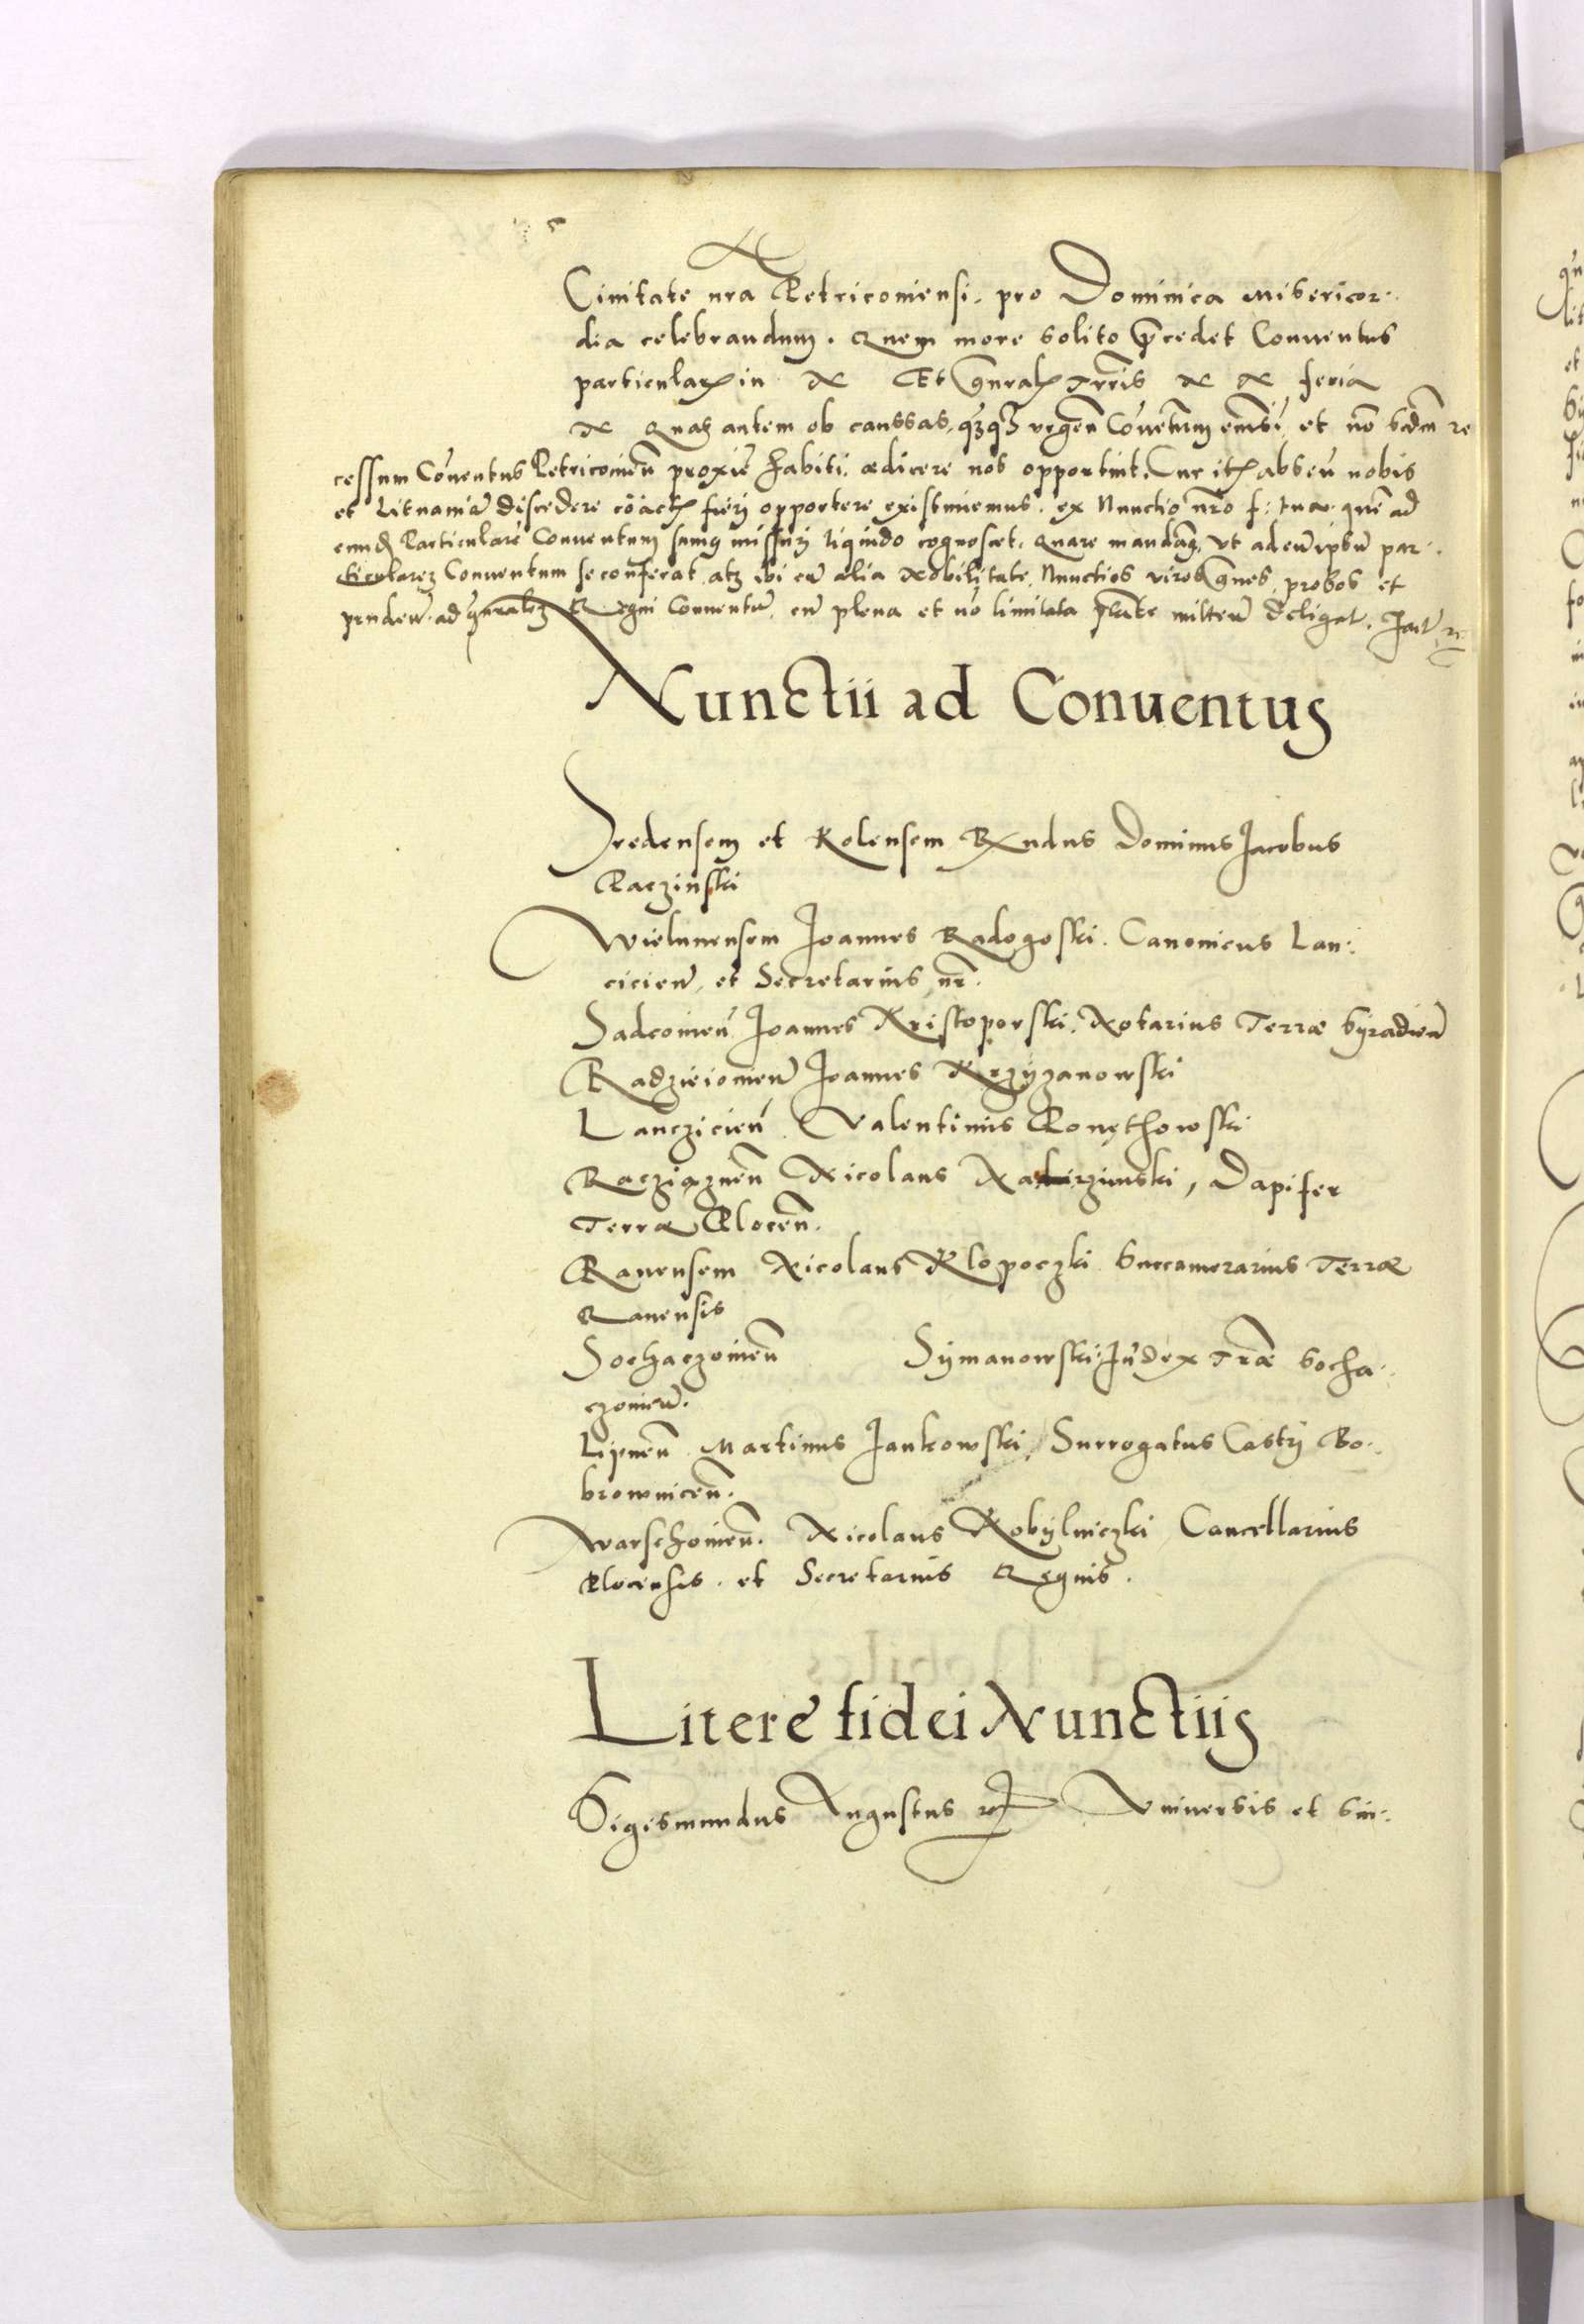 Ciuitate nra Petricouiensi. pro Dominica Misericor-
dia celebrandum. Quem more solito p̄cedet Conuentus
particularis in N Et gn̄ralis Terris N N feria
N Quas autem ob caussas, urgen̄ Cōuentum et nō scdm̄ re
cessum Cōuentus Petricouien̄ proxiē habiti. ædicere nos opportuit. Cur itē absen̄ nobis
et Lituaniā discedere fieri opportere existimemus. ex Nunctio nr̄o f: tua. quē ad
eund Particularē Conuentum sumus missuri liquido cognoscet. Quare mandam̄, ut ad eū ipsū par-
ticularem Conuentum se conferat atq ibi cū alia Nobilitate Nunctios viros graues, probos et
pruden̄. ad gn̄ralem Regni Conuentū. cū plena et nō limitata p̄tate mitten̄ deligat.
Nunctii ad Conuentus
Sredensem et Kolensem Rndus Dominus Jacobus
Paczinski
Wielunensem Joannes Radogoski. Canonicus Lan-
cicien̄. et Secretarius nr̄.
Sadcouien̄ Joannes Kristoporski. Notarius Terræ Syradien̄
Radzieiouien̄ Joannes Krzyzanowski
Lanczicien̄ Valentinus Ponęthowski
Racziąznen̄ Nicolaus, Dapifer
Terræ Plocen̄.
Rauensem Nicolaus Klopoczki Succamerarius Terræ
Rauensis
Sochaczouien̄ Symanowski Iudex Tr̄æ Socha-
czouien̄.
Lipnen̄ Martinus Jankowski, Surrogatus Castri Bo-
brownicen̄.
Warschouien̄. Nicolaus Kobylniczki Cancellarius
Plocensis. et Secretarius Regius.
Litere fidei Nunctiis
Sigismundus Augustus Vniuersis et sin-